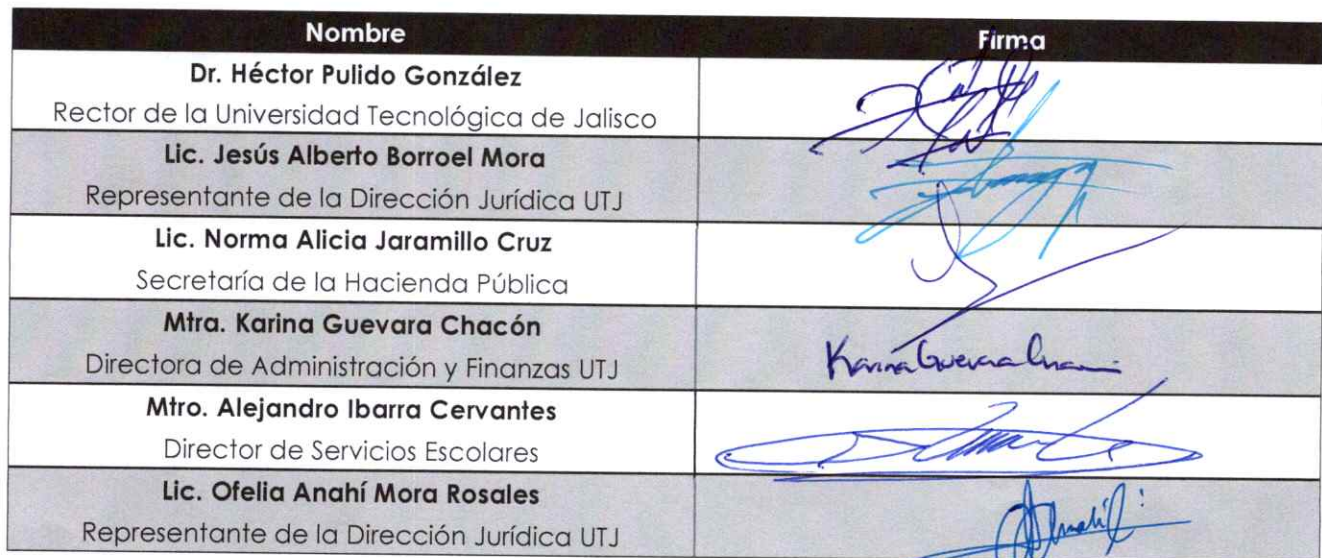 Nombre Firma
Dr. Héctor Pulido González
Rector de la Universidad Tecnológica de Jalisco
Lic. Jesús Alberto Borroel Mora
Representante de la Dirección Jurídica UTJ
Lic. Norma Alicia Jaramillo Cruz
Secretaría de la Hacienda Pública
Mtra. Karina Guevara Chacón
Directora de Administración y Finanzas UTJ
Karina Guevara
Mtro. Alejandro Ibarra Cervantes
Director de Servicios Escolares
Lic. Ofelia Anahí Mora Rosales
Representante de la Dirección Jurídica UTJ